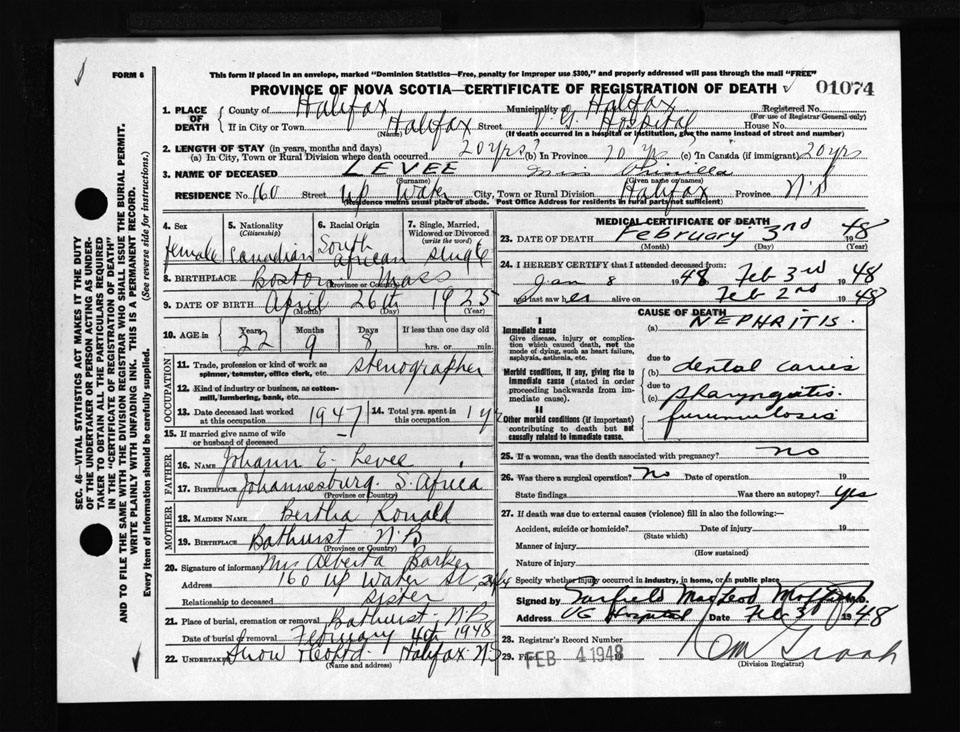 FORM 6
This form if placed in an envelope, marked "Dominion Statistics—Free, penalty for improper use $300," and properly addressed will pass through the mail "FREE"
PROVINCE OF NOVA SCOTIA—CERTIFICATE OF REGISTRATION OF DEATH 01074
1. PLACE OF DEATH
County of Halifax Municipality of Halifax Registered No.
(For use of Registrar General only)
If in City or Town Halifax Street V. G. Hospital House No.
(Name) (If death occurred in a hospital or institution, give the name instead of street and number)
2. LENGTH OF STAY (in years, months and days)
(a) In City, Town or Rural Division where death occurred 20 yrs (b) In Province 20 yrs (c) In Canada (if immigrant) 20 yrs
3. NAME OF DECEASED LEVEE Miss
(Surname) (Given name or names)
RESIDENCE No. 160 Street Up Water City, Town or Rural Division Halifax Province N.S
(Residence means usual place of abode. Post Office Address for residents in rural parts not sufficient)
4. Sex
female
5. Nationality
(Citizenship)
Canadian
6. Racial Origin
South African
7. Single, Married, Widowed or Divorced
(write the word)
single
8. BIRTHPLACE Boston Mass
(Province or Country)
9. DATE OF BIRTH April 26th 1925
(Month) (Day) (Year)
10. AGE in Years Months Days If less than one day old
22 9 8 hrs. or min.
OCCUPATION
11. Trade, profession or kind of work as spinner, teamster, office clerk, etc. stenographer
12. Kind of industry or business, as cotton-mill, lumbering, bank, etc.
13. Date deceased last worked at this occupation 1947
14. Total yrs. spent in this occupation 1 yr
15. If married give name of wife or husband of deceased —
FATHER
16. NAME Johann E. Levee
17. BIRTHPLACE Johannesburg S. Africa
(Province or Country)
MOTHER
18. MAIDEN NAME Bertha Ronald
19. BIRTHPLACE Bathurst N.B
(Province or Country)
20. Signature of informant Mrs Alberta Barker
Address 160 Up Water St,
Relationship to deceased sister
21. Place of burial, cremation or removal Bathurst, N.B
Date of burial or removal February 4th 1948
22. Undertaker Snow Halifax N.S
(Name and address)
MEDICAL CERTIFICATE OF DEATH
23. DATE OF DEATH February 3rd 1948
(Month) (Day) (Year)
24. I HEREBY CERTIFY that I attended deceased from:
Jan 8 1948 Feb 3rd 1948
and last saw her alive on Feb 2nd 1948
CAUSE OF DEATH
I
Immediate cause
Give disease, injury or complication which caused death, not the mode of dying, such as heart failure, asphyxia, asthenia, etc.
(a) NEPHRITIS.
due to
Morbid conditions, if any, giving rise to immediate cause (stated in order proceeding backwards from immediate cause).
(b) dental caries
due to
(c) pharyngitis.
II
Other morbid conditions (if important) contributing to death but not causally related to immediate cause.
furunculosis
25. If a woman, was the death associated with pregnancy? no
26. Was there a surgical operation? No Date of operation 19
State findings Was there an autopsy? yes
27. If death was due to external causes (violence) fill in also the following:—
Accident, suicide or homicide? Date of injury 19
(State which)
Manner of injury
(How sustained)
Nature of injury
Specify whether injury occurred in industry, in home, or in public place
Signed by Garfield MacLeod M.D.
Address V.G Hospital Date Feb 3 1948
28. Registrar's Record Number
29. Filed FEB 4 1948
(Division Registrar)
SEC. 46—VITAL STATISTICS ACT MAKES IT THE DUTY
OF THE UNDERTAKER OR PERSON ACTING AS UNDER-
TAKER TO OBTAIN ALL THE PARTICULARS REQUIRED
IN THE "CERTIFICATE OF REGISTRATION OF DEATH"
AND TO FILE THE SAME WITH THE DIVISION REGISTRAR WHO SHALL ISSUE THE BURIAL PERMIT.
WRITE PLAINLY WITH UNFADING INK. THIS IS A PERMANENT RECORD.
Every item of Information should be carefully supplied. (See reverse side for instructions.)